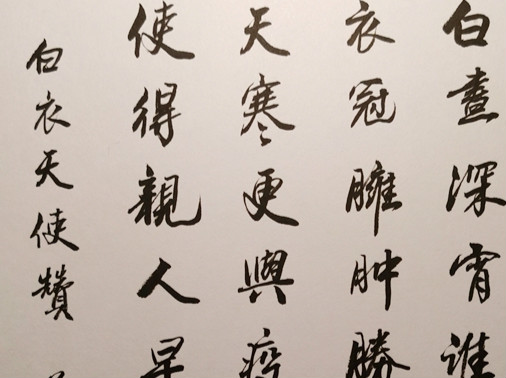 白晝深宵誰
衣冠臃肿勝
天寒更與疫
使得親人早
白衣天使贊